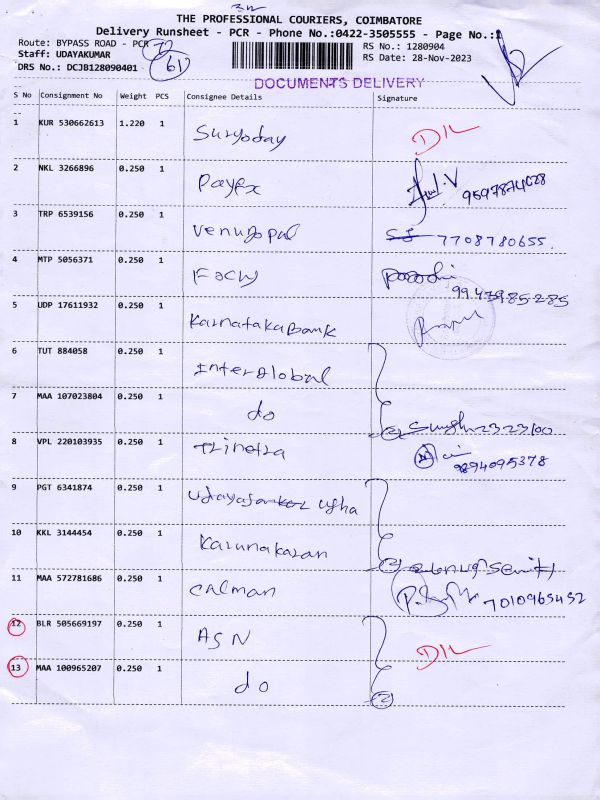 THE PROFESSIONAL COURIERS, COIMBATORE
Delivery Runsheet - PCR - Phone No.:0422-3505555 - Page No.:1
Route: BYPASS ROAD - PCR
RS No.: 1280904
Staff: UDAYAKUMAR
RS Date: 28-Nov-2023
DRS No.: DCJB128090401
DOCUMENTS DELIVERY
S No Consignment No Weight PCS Consignee Details Signature
1 KUR 530662613 1.220 1 Suryoday D/L
2 NKL 3266896 0.250 1 Payex 9597874628
3 TRP 6539156 0.250 1 Venugopal 7708780655.
4 MTP 5056371 0.250 1 9943985285
5 UDP 17611932 0.250 1 Karnataka Bank
6 TUT 884058 0.250 1 Interglobal
7 MAA 107023804 0.250 1 do
8 VPL 220103935 0.250 1 Trinetra 9894095378
9 PGT 6341874 0.250 1 Usha
10 KKL 3144454 0.250 1 Karunakaran
11 MAA 572781686 0.250 1 Calman 7010965452
12 BLR 505669197 0.250 1 ASN D/L
13 MAA 100965207 0.250 1 do 2